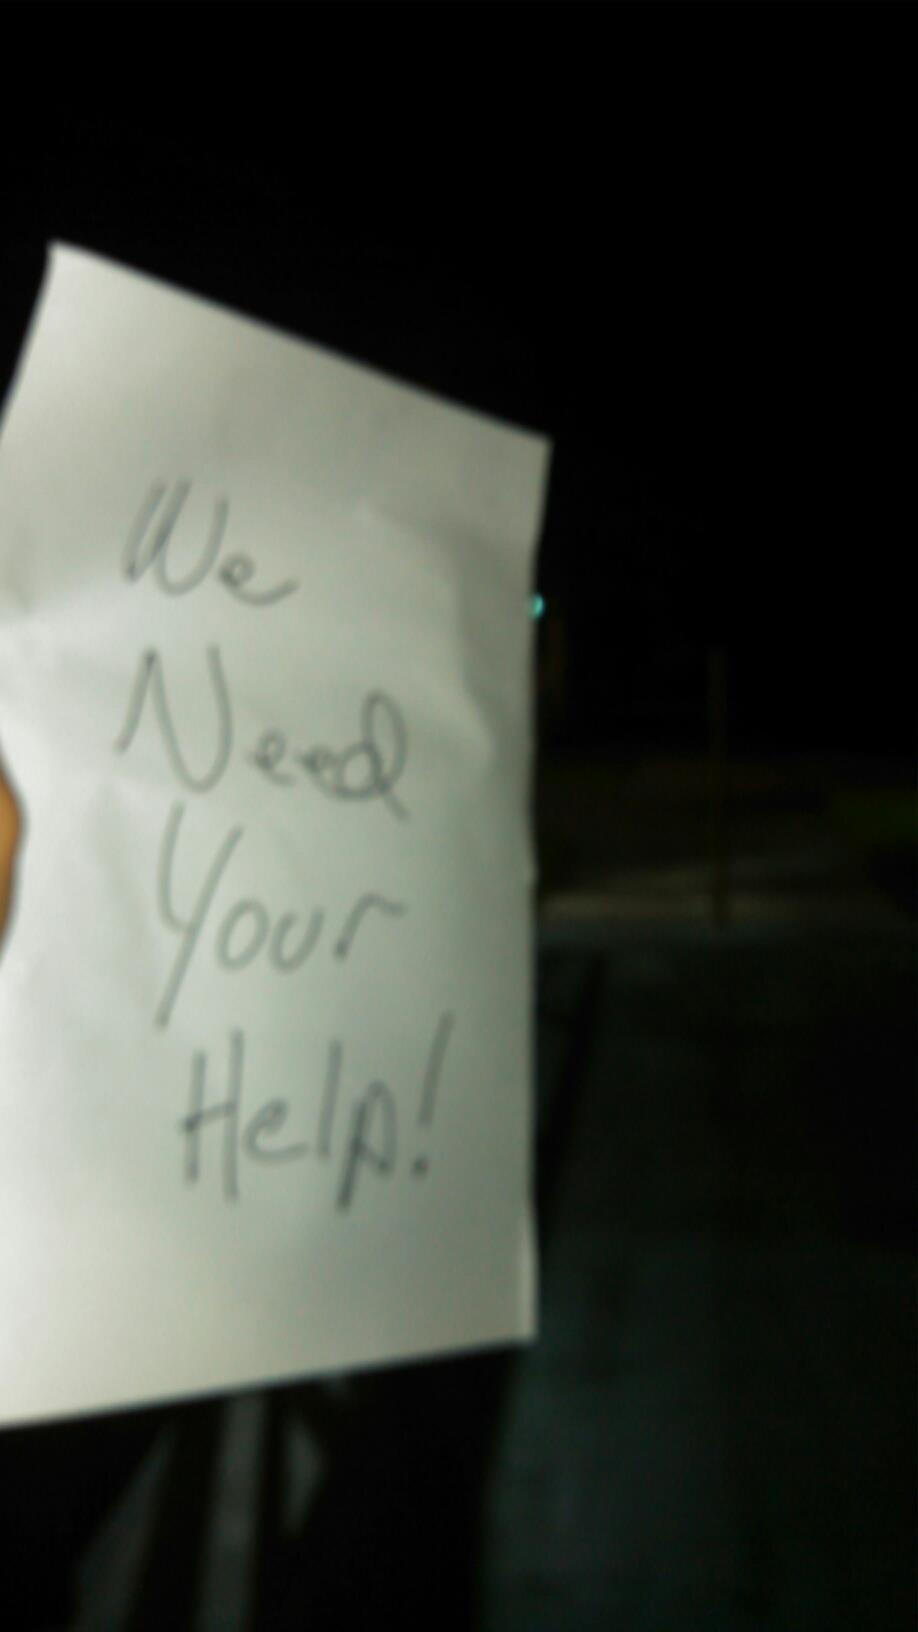 We
Need
Your
Help!